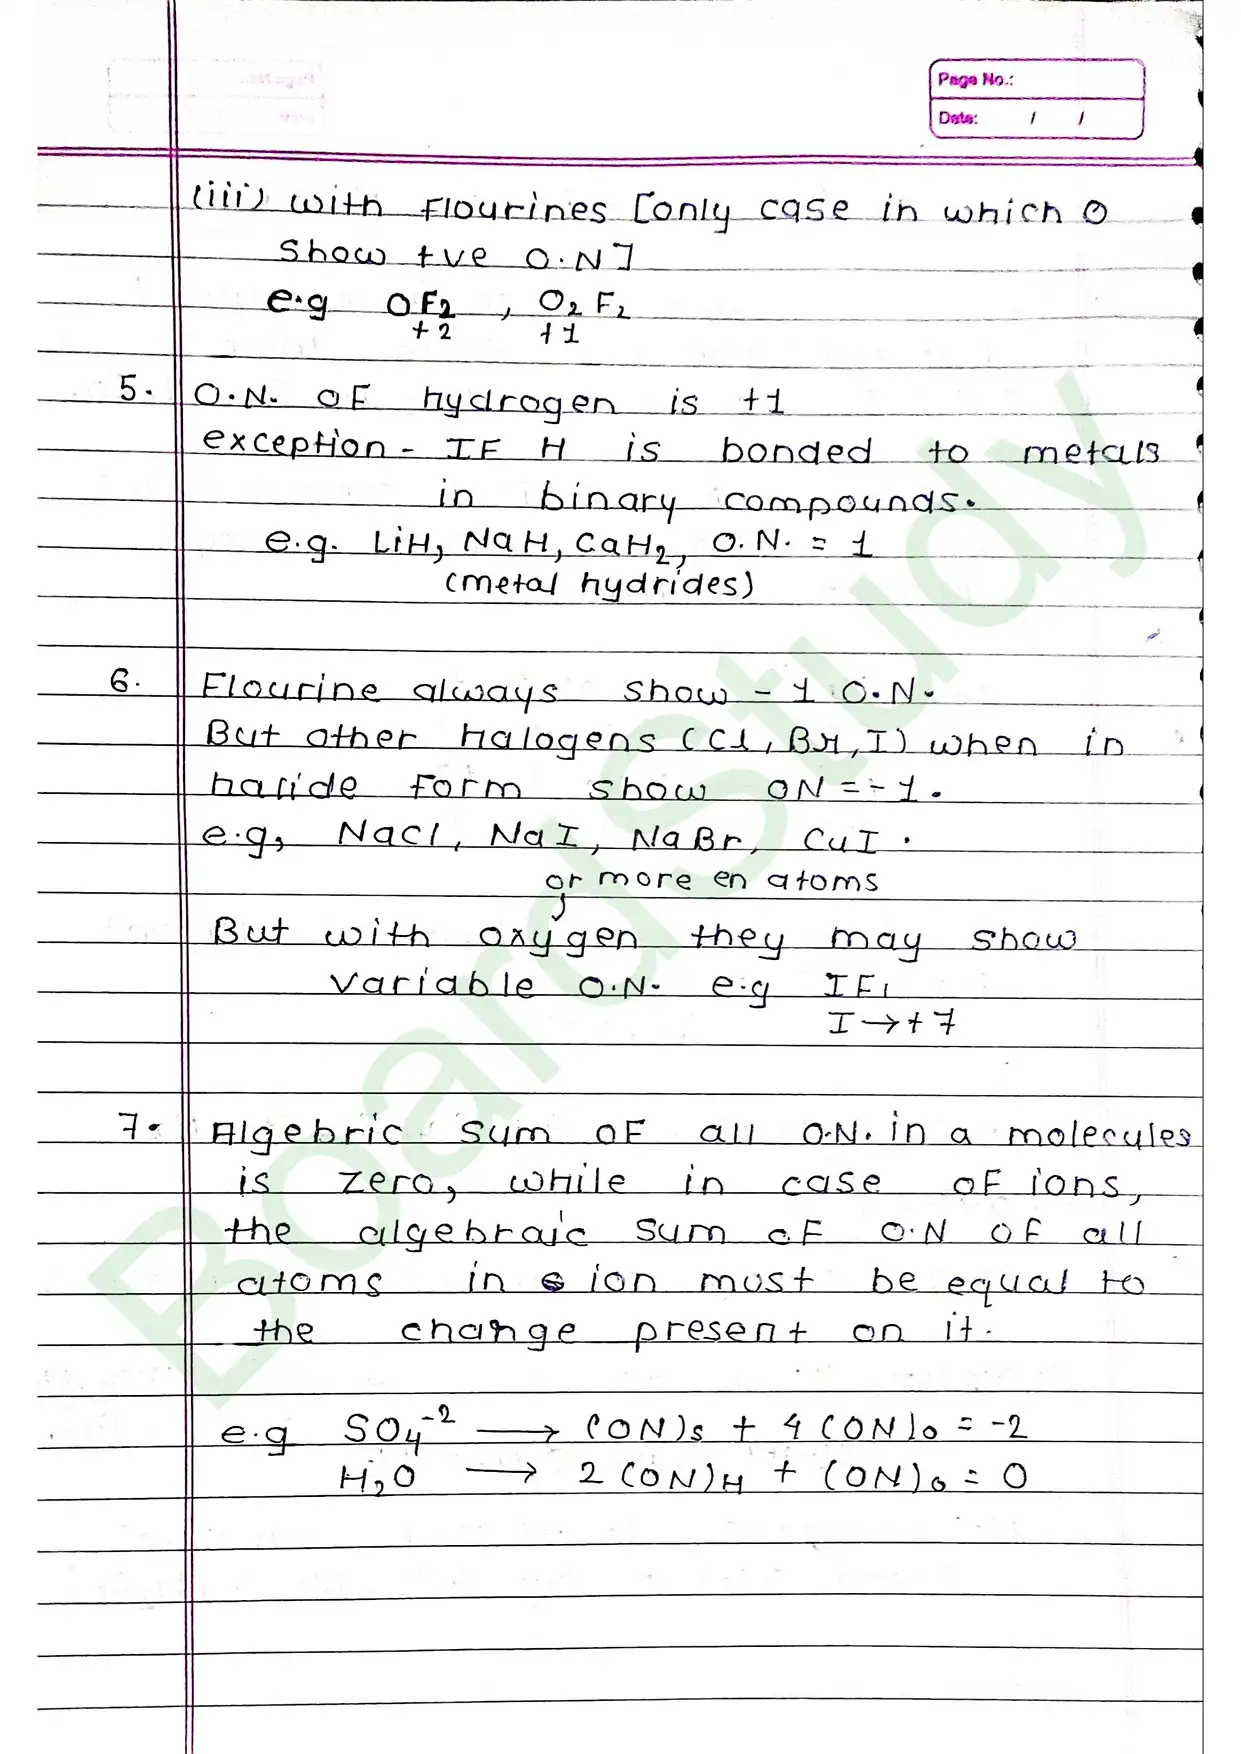 Page No.:
Date: / /
(iii) with Flourines [only case in which O
show +ve O.N]
e.g OF2 , O2F2
+2 +1
5. O.N. OF hydrogen is +1
exception - IF H is bonded to metals
in binary compounds.
e.g. LiH, NaH, CaH2, O.N. = 1
(metal hydrides)
6. Flourine always show -1 O.N.
But other halogens (Cl, Br, I) when in
halide form show ON = -1.
e.g, NaCl, NaI, NaBr, CuI.
or more en atoms
But with oxygen they may show
variable O.N. e.g IF1
I → +7
7. Algebric sum OF all O.N. in a molecules
is zero, while in case OF ions,
the algebraic sum OF O.N OF all
atoms in ion must be equal to
the change present on it.
e.g SO4-2 → (ON)s + 4(ON)o = -2
H2O → 2(ON)H + (ON)o = 0
BoardStudy